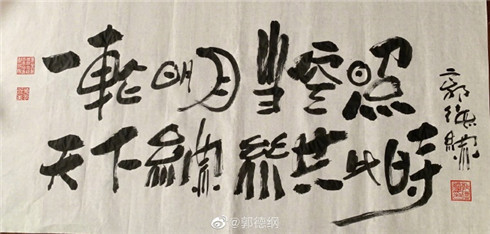 一輪明月當空照
天下綱絲共此時
郭德綱
@郭德纲